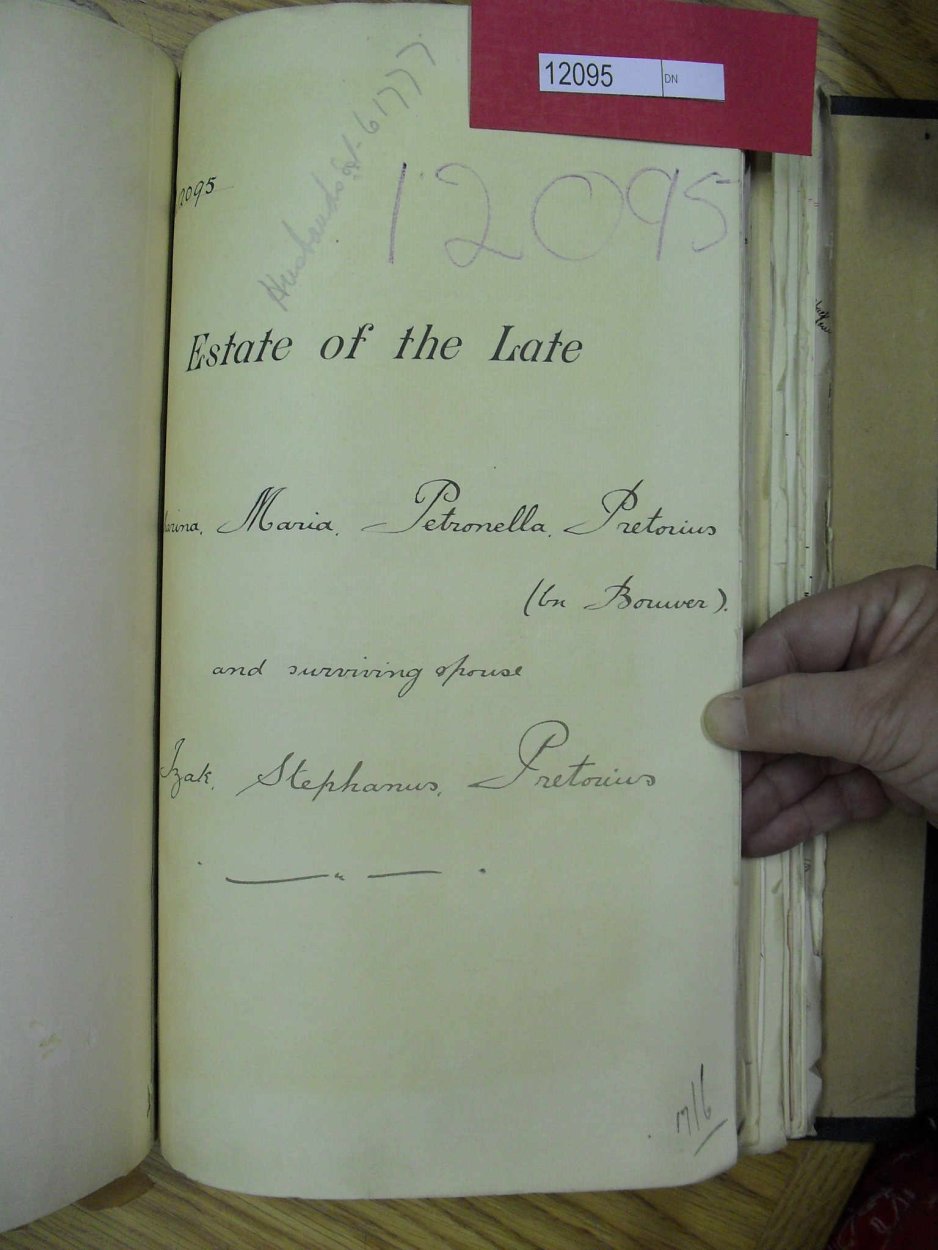 12095 DN
Husband's Est. 6177
2095
12095
Estate of the Late
arina, Maria, Petronella, Pretorius
(bn Bouwer).
and surviving spouse
Izak, Stephanus, Pretorius